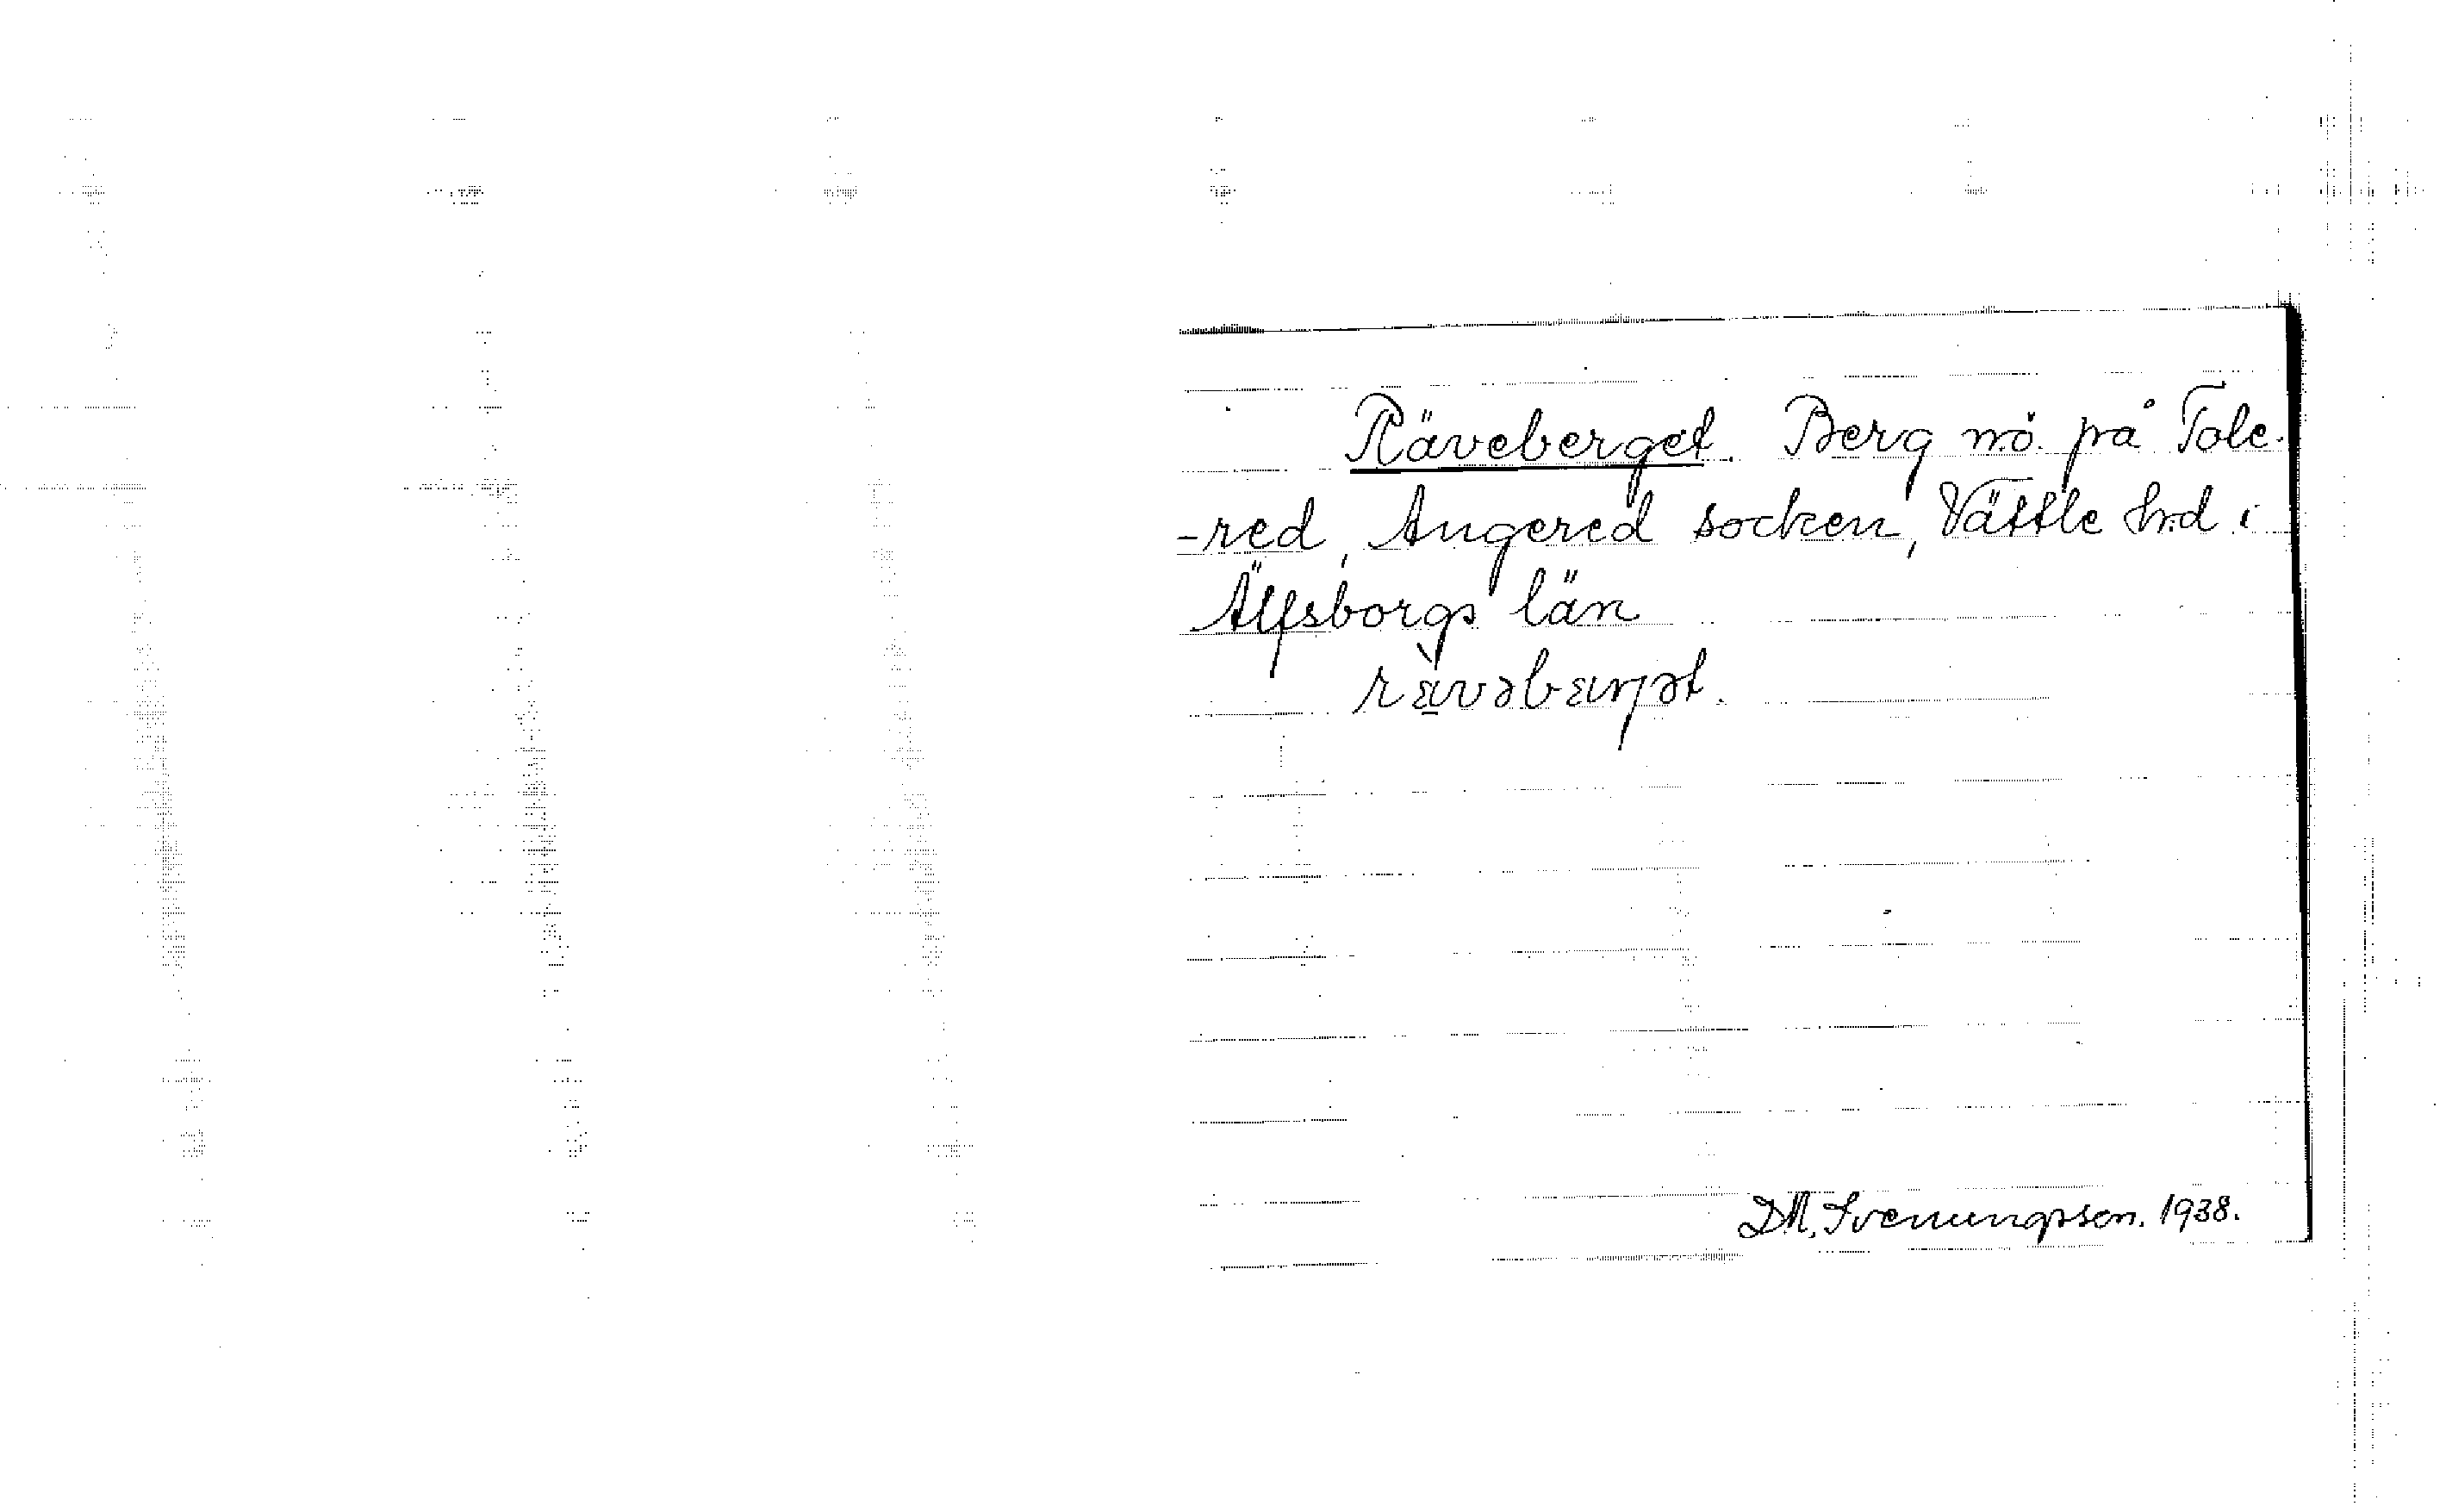 Räveberget. Berg nö. på Tole-
-red, Angered socken, Vättle hd i
Älfsborgs län
rävəbærjət.
D.A. Svenungsson. 1938.